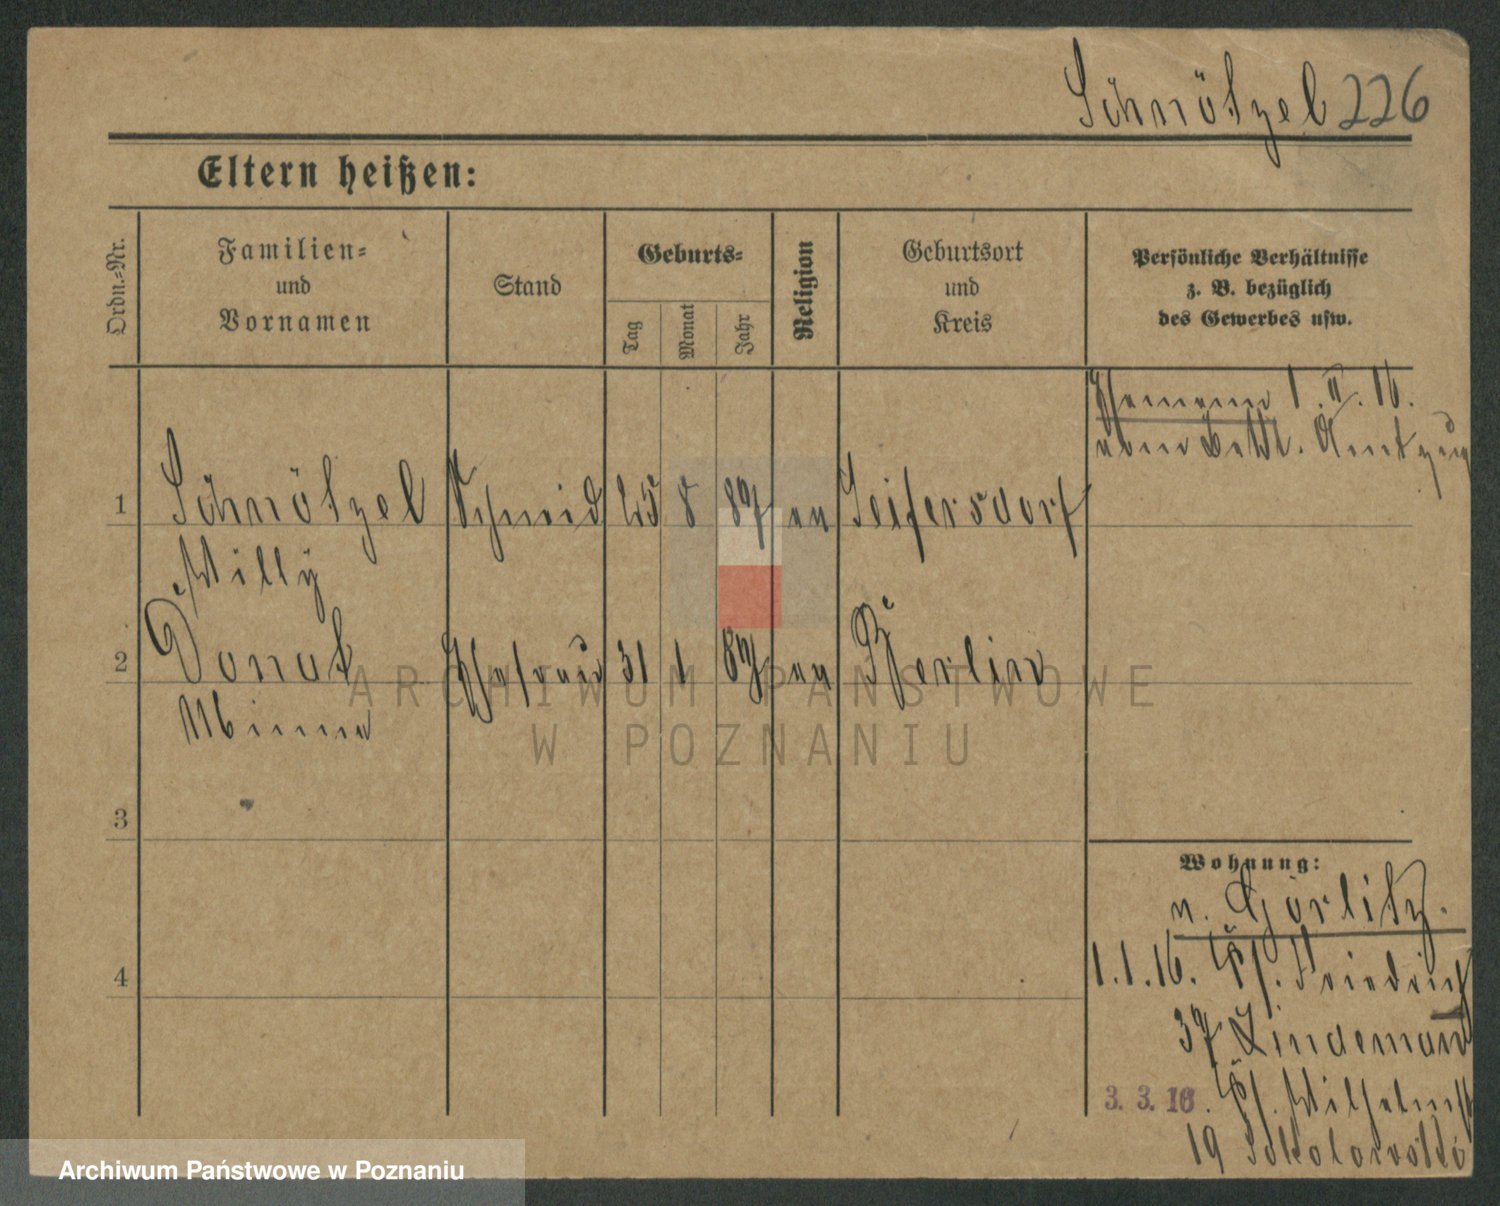 Schnötzel 226
Eltern heißen:
Ordn.-Nr.
Familien-
und
Vornamen
Stand
Geburts-
Tag
Monat
Jahr
Religion
Geburtsort
und
Kreis
Persönliche Verhältnisse
z. B. bezüglich
des Gewerbes usw.
Ehemann 1. II. 16.
1 Schnötzel Schmied 25 8 87 ev Seifersdorf
Willy
2 Donat Ehefrau 31 1 87 ev Berlin
Minna
3
4
Wohnung:
v. Görlitz.
1.1.16. Friedrich
37 Lindemann
3. 3. 16. Wilhelmst
19 Sokolowski
ARCHIWUM PAŃSTWOWE
W POZNANIU
Archiwum Państwowe w Poznaniu